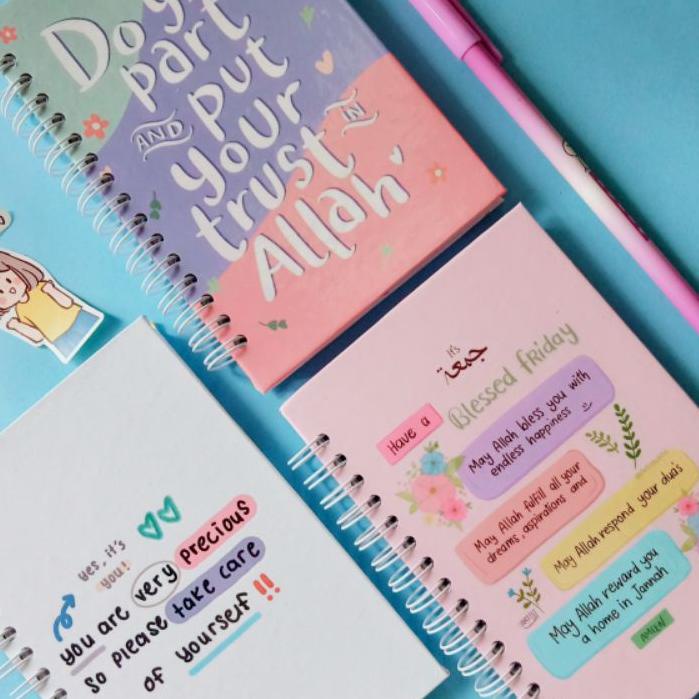 Do
part
AND put
your
trust IN
Allah
It's
جمعة
Blessed friday
Have a
May Allah bless you with
endless happiness
May Allah fulfill all your
dreams, aspirations and
May Allah respond your duas
May Allah reward you
a home in Jannah
AMEEN
yes, it's
you!
you are very precious
so please take care
of yourself !!